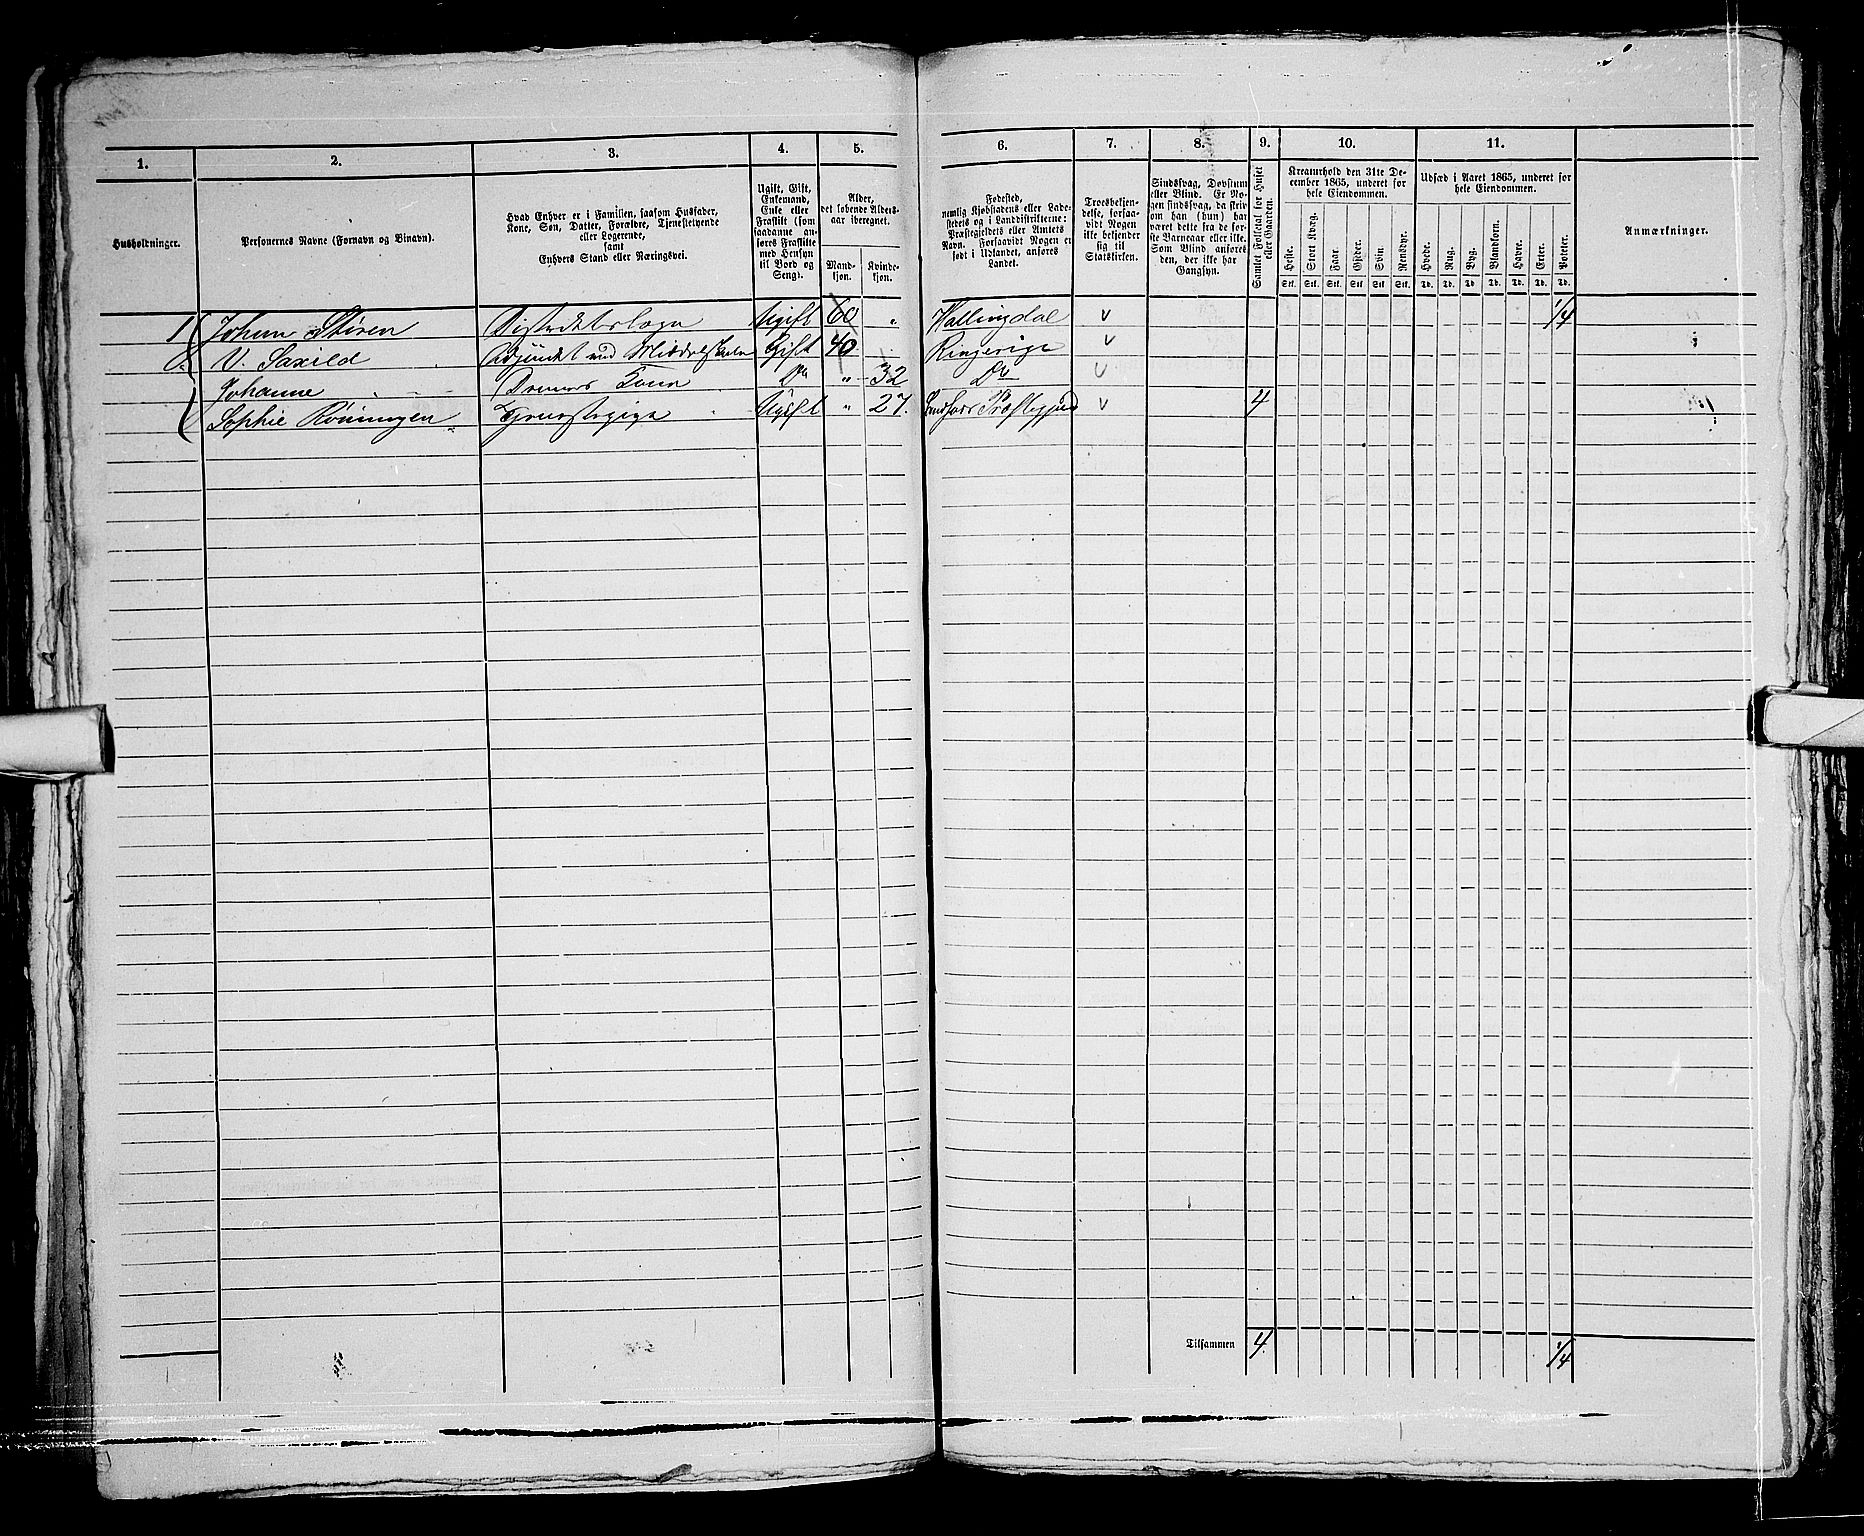 1.
2.
3.
4.
5.
Husholdninger.
Personernes Navne (Fornavn og Binavn).
Hvad Enhver er i Familien, saasom Husfader,
Kone, Søn, Datter, Forældre, Tjenestetyende
eller Logerende,
samt
Enhvers Stand eller Næringsvei.
Ugift, Gift,
Enkemand,
Enke eller
Fraskilt (som
saadanne an-
føres Fraskilte
med Hensyn
til Bord og
Seng).
Alder,
det løbende Alders-
aar iberegnet.
Mand-
kjøn.
Kvinde-
kjøn.
1 Johan Støren Distriktslæge Ugift 60 "
V. Saxild Adjunkt ved Middelskolen Gift 40
Johanne Dennes Kone Do " 32
Sophie Røningen Tjenestepige Ugift " 27.
6.
7.
8.
9.
10.
11.
Fødested,
nemlig Kjøbstadens eller Lade-
stedets og i Landdistrikterne:
Præstegjeldets eller Amtets
Navn. Forsaavidt Nogen er
født i Udlandet, anføres
Landet.
Troesbekjen-
delse, forsaa-
vidt Nogen
ikke bekjender
sig til
Statskirken.
Sindssvag, Døvstum
eller Blind. Er No-
gen sindssvag, da skriv
om han (hun) har
været dette fra de før-
ste Barneaar eller ikke.
Som Blind anføres
den, der ikke har
Gangsyn.
Samlet Folketal for Huset
eller Gaarden.
Kreaturhold den 31te De-
cember 1865, underet for
hele Eiendommen.
Heste.
Stort Kvæg.
Faar.
Gjeder.
Svin.
Rensdyr.
Stk. Stk. Stk. Stk. Stk. Stk.
Udsæd i Aaret 1865, underet for
hele Eiendommen.
Hvede.
Rug.
Byg.
Blandkorn.
Havre.
Erter.
Poteter.
Td. Td. Td. Td. Td. Td. Td.
Anmærkninger.
Hallingdal v 1/4
Ringerige v
Do v
Præstegjeld v 4
Tilsammen 4 1/4